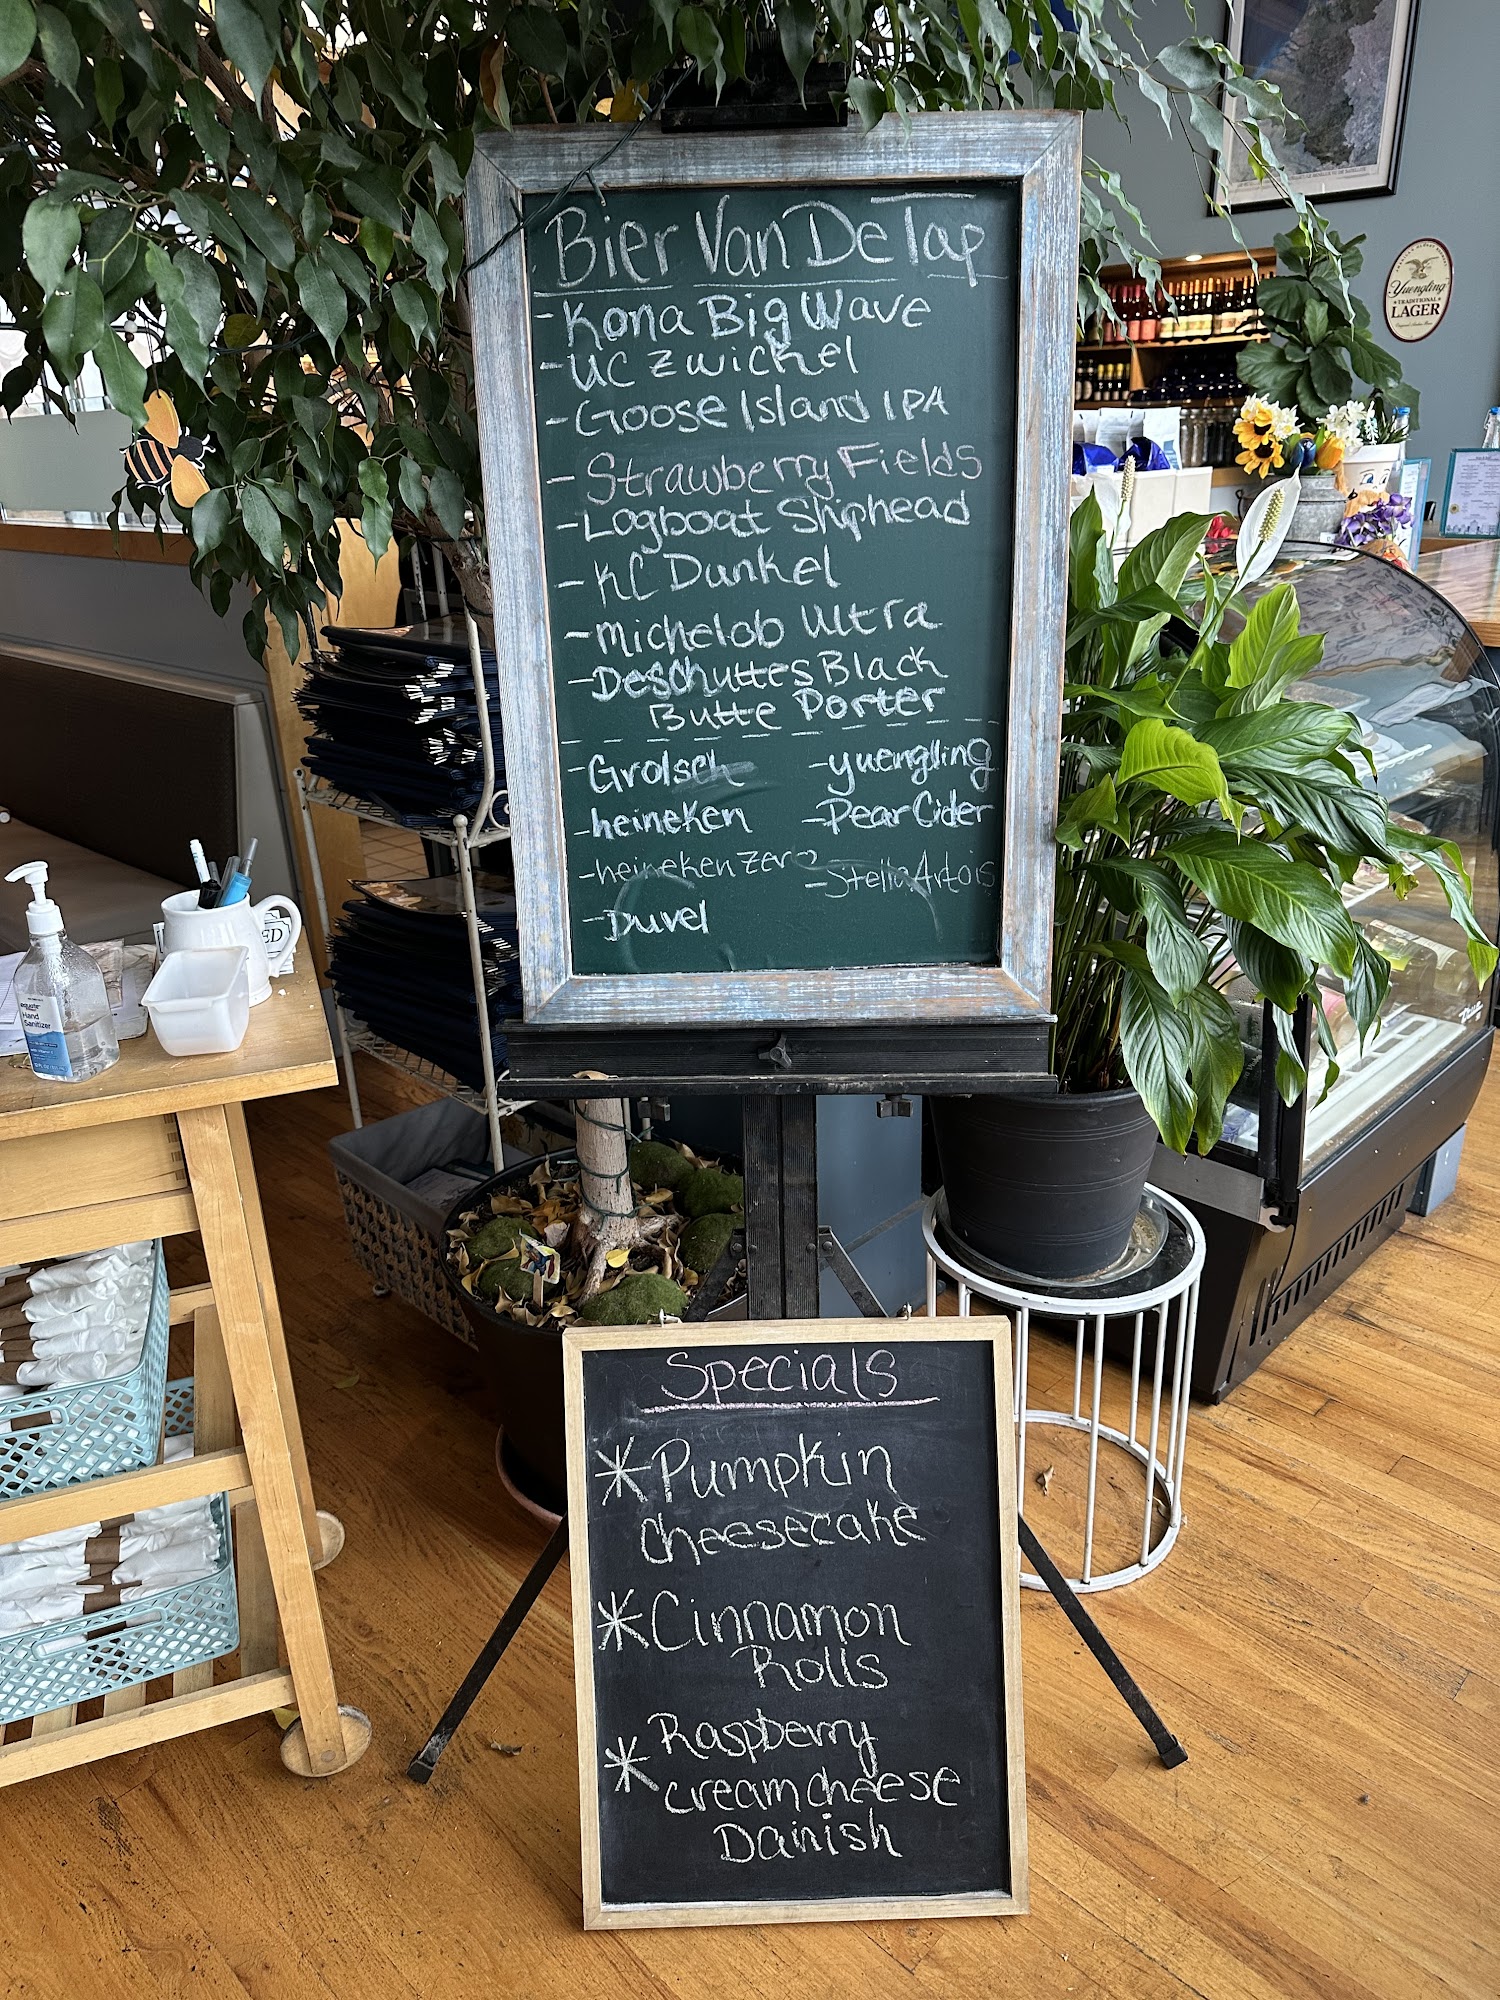 Bier Van De Tap
- Kona Big Wave
- UC Zwickel
- Goose Island IPA
- Strawberry Fields
- Logboat Shiphead
- KC Dunkel
- Michelob Ultra
- Deschuttes Black
Butte Porter
- Grolsch
- yuengling
- heineken
- Pear Cider
- heineken zero
- Stella Artois
- Duvel
Specials
* Pumpkin
Cheesecake
* Cinnamon
Rolls
* Raspberry
cream cheese
Danish
Yuengling
TRADITIONAL
LAGER
equate
Hand
Sanitizer
ED